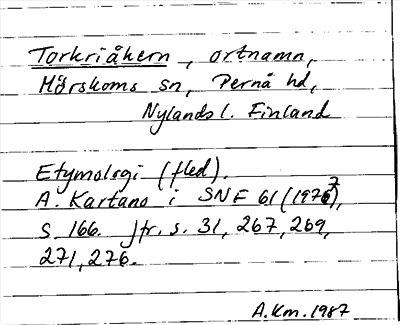 Torkriåkern, ortnamn,
Mörskoms sn, Pernå hd,
Nylands l. Finland
Etymologi (fled).
A. Kartano i SNF 61 (1977),
s. 166. Jfr. s. 31, 267, 269,
271, 276.
A.Km. 1987